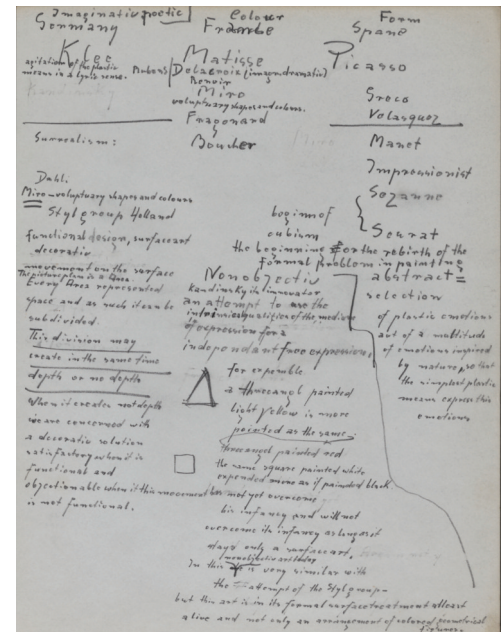 Imaginativ poetic Colour Form
Germany France Spane
Klee Matisse Picasso
agitation of the plastic
means in a lyric sense.
Rubens Delacroix (imagin. dramatic)
Renoir
Miro
voluptuary shapes and colours.
Fragonard
Boucher
Greco
Velasquez
Manet
Impressionist
Sezanne
Seurat
Surrealism:
Dahli.
Miro - voluptuary shapes and colours
Stylgroup Holland
functional design, surface art
decorativ
movement on the surface
The picture plan is a Area
Every Area represented
space and as such it can be
subdivided.
This division may
create in the same time
depth or no depth
When it creates not depth
we are concerned with
a decorativ solution
satisfactory when it is
functional and
objectionable when it this movement
is not functional.
begin of
cubism
the beginning for the rebirth of the
formal problem in painting
Nonobjectiv
Kandinsky its innovator
an attempt to use the
intrinsic qualities of the medium
of expression for a
independant free expression,
for exemble
a threeangl painted
light yellow is more
pointed as the same
threeangl painted red
the same square painted white
expended more as if painted black.
has not yet overcome
his infancy and will not
overcome its infancy as long as it
stays only a surface art.
In this nonobjectiv art today is very similar with
the attempt of the Stylgroup -
but this art is in its formal surface treatment at least
alive and not only an arrangement of colored geometrical
figures.
abstract =
selection
of plastic emotions
out of a multitude
of emotions inspired
by nature, so that
the simplest plastic
means express this
emotions